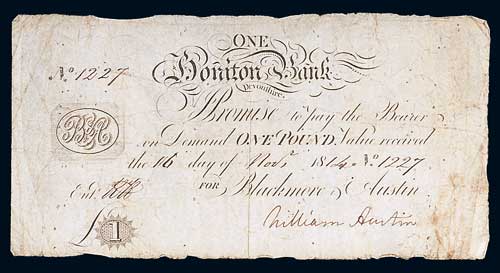 ONE
No. 1227 Honiton Bank
Devonshire.
I Promise to pay the Bearer
on Demand ONE POUND, Value received
the 16 day of Novr. 1814. No. 1227
Entd. FOR Blackmore & Austin
£1 William Austin